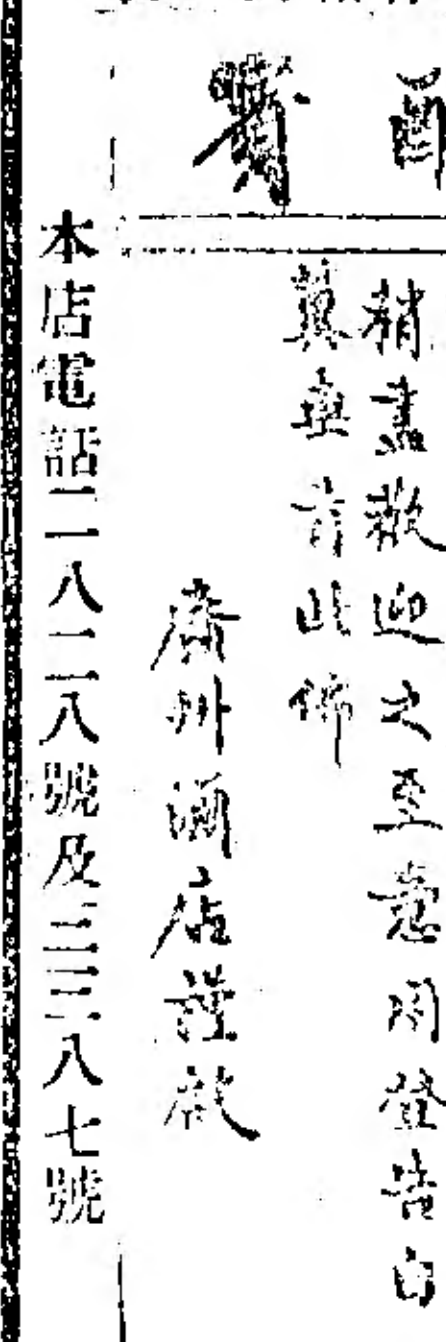 稍盡歡迎之至意用登告白
冀垂青此佈
廣州酒店謹啟
本店電話二八二八號及三三八七號